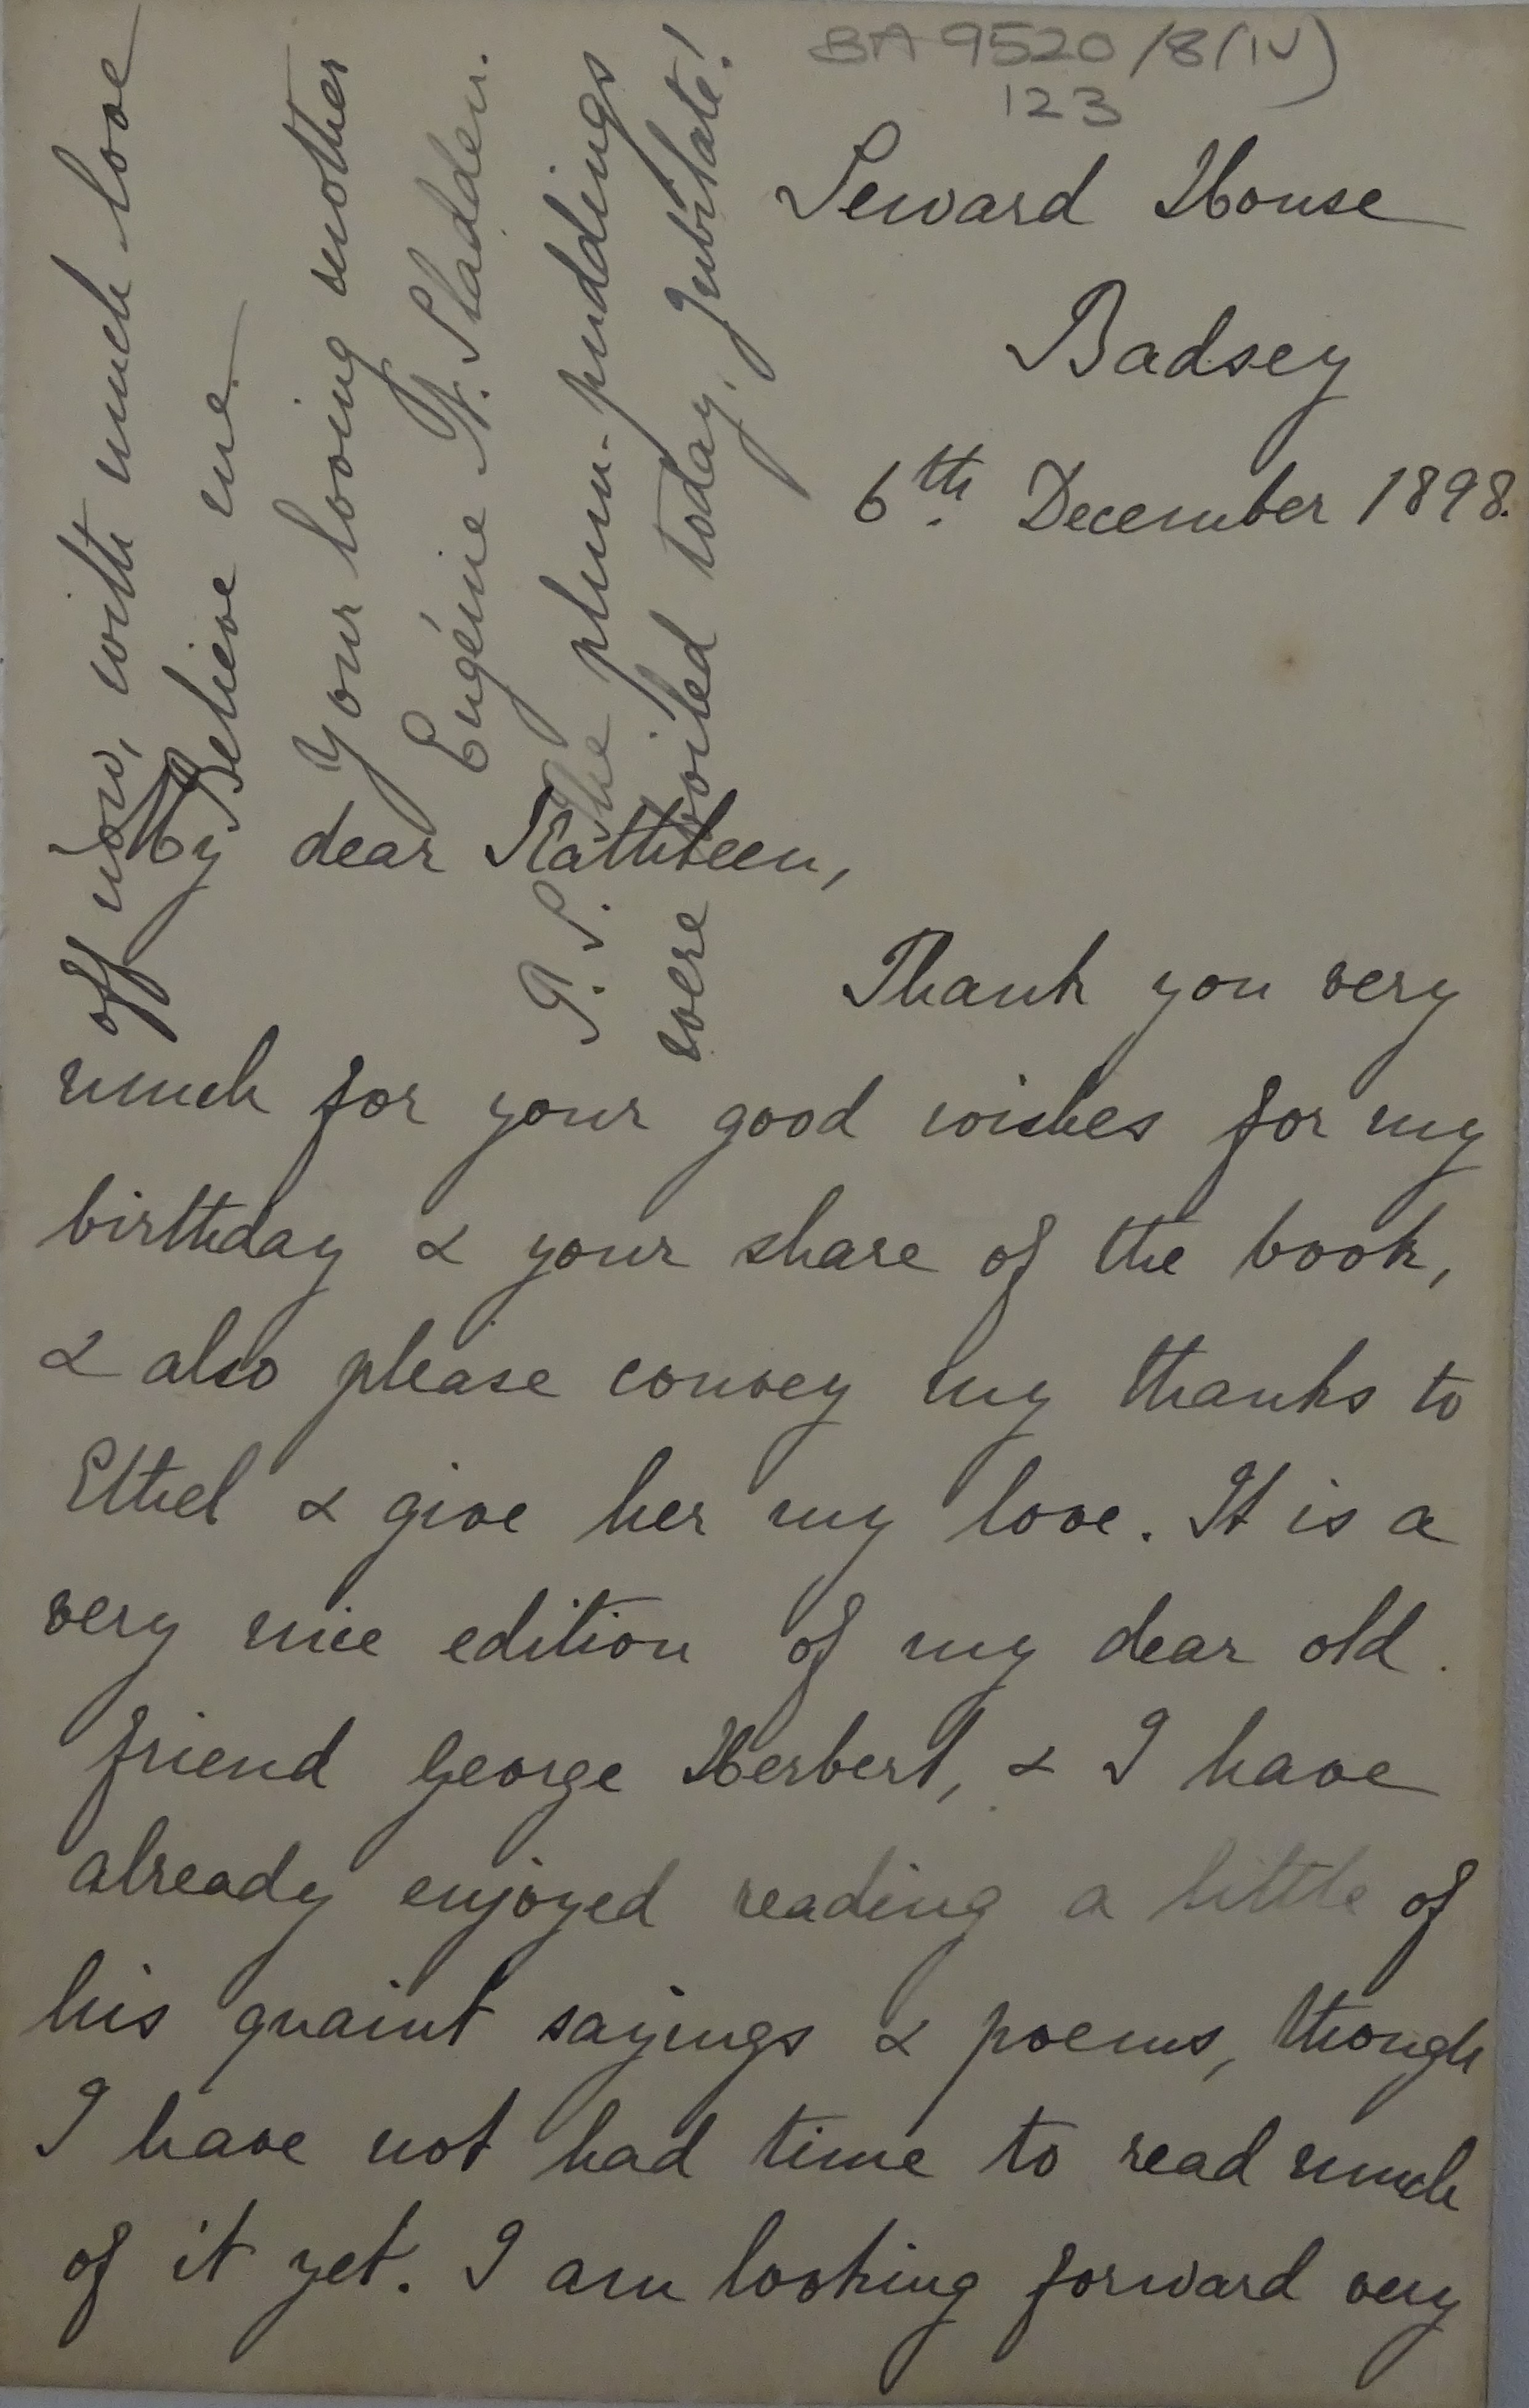 BA 9520/8(IV)
123
Seward House
Badsey
6th. December 1898.
My dear Kathleen,
Thank you very
much for your good wishes for my
birthday & your share of the book,
& also please convey my thanks to
Ethel & give her my love. It is a
very nice edition of my dear old
friend George Herbert, & I have
already enjoyed reading a little of
his quaint sayings & poems, though
I have not had time to read much
of it yet. I am looking forward very
off now, with much love
Believe me
Your loving mother
Eugénie N. Sladden.
P.S. The plum-puddings
were boiled today, Jubilate!